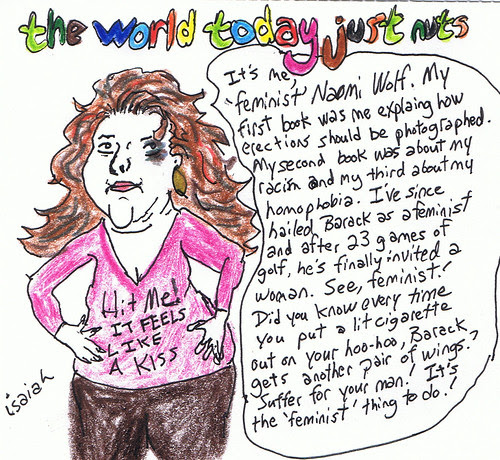 the world today just nuts
It's me,
"feminist" Naomi Wolf. My
first book was me explaing how
erections should be photographed.
My second book was about my
racism and my third about my
homophobia. I've since
hailed Barack as a feminist
and after 23 games of
golf, he's finally invited a
woman. See, feminist!
Did you know every time
you put a lit cigarette
out on your hoo-hoo, Barack
gets another pair of wings?
Suffer for your man! It's
the 'feminist' thing to do!
Hit Me!
IT FEELS
LIKE
A KISS
isaiah